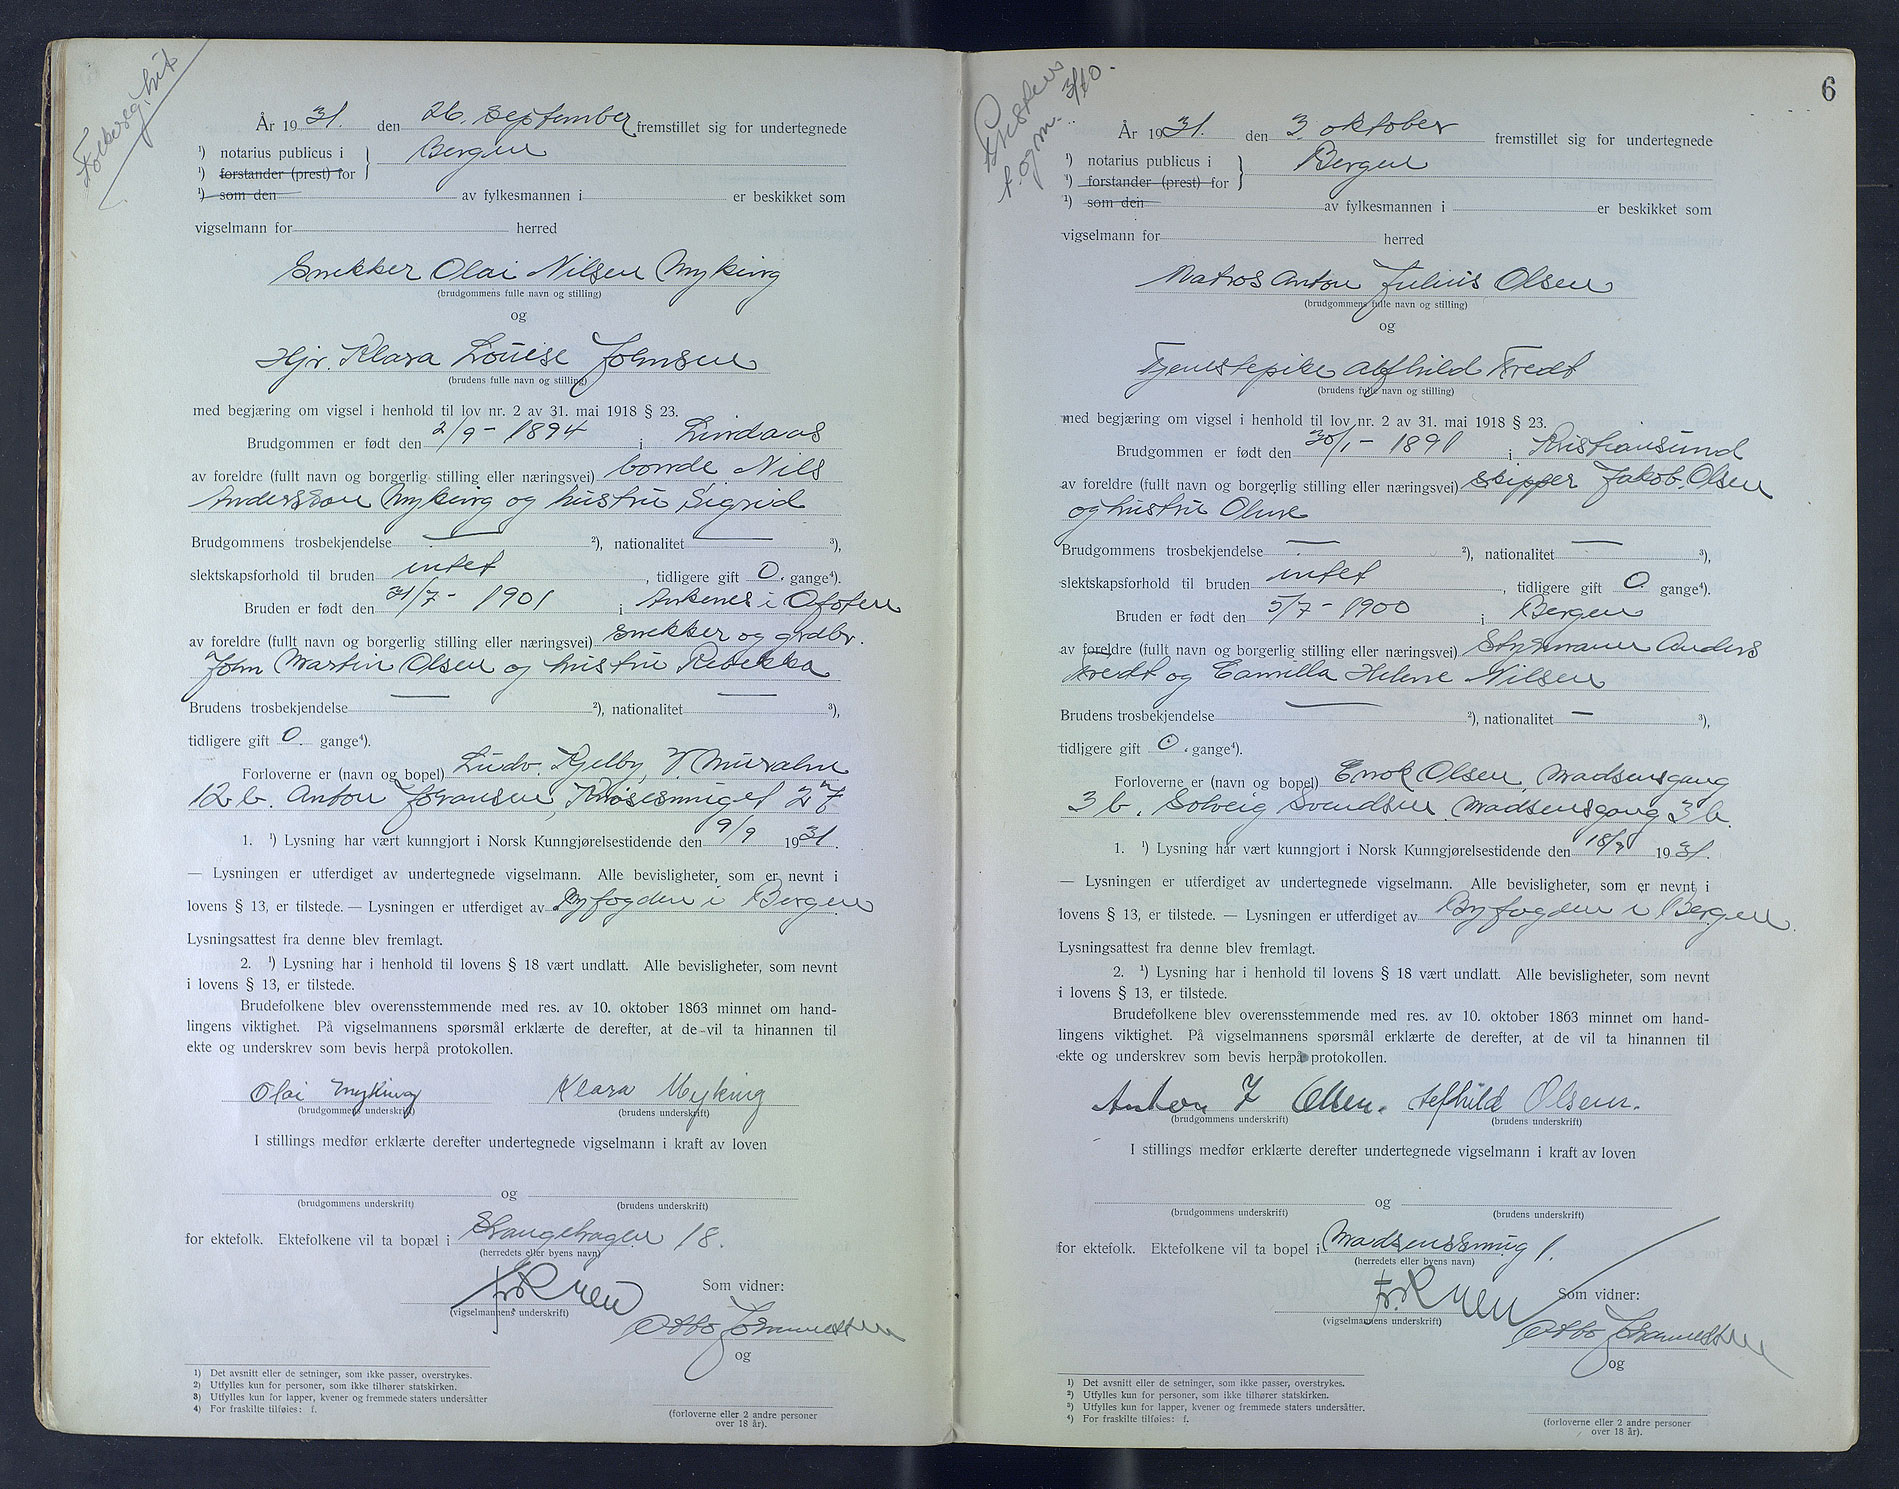 Folkereg. hit
År 1931. den 26. september fremstillet sig for undertegnede
¹) notarius publicus i } Bergen
¹) forstander (prest) for
¹) som den av fylkesmannen i er beskikket som
vigselmann for herred
Snekker Olai Nilsen Myking
(brudgommens fulle navn og stilling)
og
Hjv. Klara Louise Johnsen
(brudens fulle navn og stilling)
med begjæring om vigsel i henhold til lov nr. 2 av 31. mai 1918 § 23.
Brudgommen er født den 2/9 - 1894 i Lindaas
av foreldre (fullt navn og borgerlig stilling eller næringsvei) bonde Nils
Andersson Myking og hustru Sigrid
Brudgommens trosbekjendelse — ²), nationalitet — ³),
slektskapsforhold til bruden intet , tidligere gift 0. gange⁴).
Bruden er født den 31/7 - 1901 i Ankenes i Ofoten
av foreldre (fullt navn og borgerlig stilling eller næringsvei) snekker og grdbr.
John Martin Olsen og hustru Rebekka
Brudens trosbekjendelse — ²), nationalitet — ³),
tidligere gift 0. gange⁴).
Forloverne er (navn og bopel) Ludv. Kjelby, V. Muralm
12 b. Anton Johansen, 27
1. ¹) Lysning har vært kunngjort i Norsk Kunngjørelsestidende den 9/9 1931.
— Lysningen er utferdiget av undertegnede vigselmann. Alle bevisligheter, som er nevnt i
lovens § 13, er tilstede. — Lysningen er utferdiget av Byfogden i Bergen
Lysningsattest fra denne blev fremlagt.
2. ¹) Lysning har i henhold til lovens § 18 vært undlatt. Alle bevisligheter, som nevnt
i lovens § 13, er tilstede.
Brudefolkene blev overensstemmende med res. av 10. oktober 1863 minnet om hand-
lingens viktighet. På vigselmannens spørsmål erklærte de derefter, at de vil ta hinannen til
ekte og underskrev som bevis herpå protokollen.
Olai Myking Klara Myking
(brudgommens underskrift) (brudens underskrift)
I stillings medfør erklærte derefter undertegnede vigselmann i kraft av loven
og
(brudgommens underskrift) (brudens underskrift)
for ektefolk. Ektefolkene vil ta bopæl i Strangehagen 18.
(herredets eller byens navn)
Som vidner:
(vigselmannens underskrift)
Otto Johannessen
og
1) Det avsnitt eller de setninger, som ikke passer, overstrykes.
2) Utfylles kun for personer, som ikke tilhører statskirken.
3) Utfylles kun for lapper, kvener og fremmede staters undersåtter
4) For fraskilte tilføies: f.
(forloverne eller 2 andre personer
over 18 år).
6
3/10.
f. og m.
År 1931. den 3. oktober fremstillet sig for undertegnede
¹) notarius publicus i } Bergen
¹) forstander (prest) for
¹) som den av fylkesmannen i er beskikket som
vigselmann for herred
Matros Anton Julius Olsen
(brudgommens fulle navn og stilling)
og
Tjenestepike Alfhild Tredt
(brudens fulle navn og stilling)
med begjæring om vigsel i henhold til lov nr. 2 av 31. mai 1918 § 23.
Brudgommen er født den 30/1 - 1891 i Kristiansund
av foreldre (fullt navn og borgerlig stilling eller næringsvei) skipper Jakob Olsen
og hustru Oline
Brudgommens trosbekjendelse — ²), nationalitet — ³),
slektskapsforhold til bruden intet , tidligere gift 0 gange⁴).
Bruden er født den 5/7 - 1900 i Bergen
av foreldre (fullt navn og borgerlig stilling eller næringsvei) Styrmann Anders
Tredt og Camilla Helene Nilsen
Brudens trosbekjendelse — ²), nationalitet — ³),
tidligere gift 0. gange⁴).
Forloverne er (navn og bopel) Enok Olsen, Madsensgang
3 b. Solveig Svendsen. Madsensgang 3 b.
1. ¹) Lysning har vært kunngjort i Norsk Kunngjørelsestidende den 18/9 1931.
— Lysningen er utferdiget av undertegnede vigselmann. Alle bevisligheter, som er nevnt i
lovens § 13, er tilstede. — Lysningen er utferdiget av Byfogden i Bergen.
Lysningsattest fra denne blev fremlagt.
2. ¹) Lysning har i henhold til lovens § 18 vært undlatt. Alle bevisligheter, som nevnt
i lovens § 13, er tilstede.
Brudefolkene blev overensstemmende med res. av 10. oktober 1863 minnet om hand-
lingens viktighet. På vigselmannens spørsmål erklærte de derefter, at de vil ta hinannen til
ekte og underskrev som bevis herpå protokollen.
Anton J Olsen. Alfhild Olsen.
(brudgommens underskrift) (brudens underskrift)
I stillings medfør erklærte derefter undertegnede vigselmann i kraft av loven
og
(brudgommens underskrift) (brudens underskrift)
for ektefolk. Ektefolkene vil ta bopel i Madsenssmug 1.
(herredets eller byens navn)
Som vidner:
(vigselmannens underskrift)
Otto Johannessen
og
1) Det avsnitt eller de setninger, som ikke passer, overstrykes.
2) Utfylles kun for personer, som ikke tilhører statskirken.
3) Utfylles kun for lapper, kvener og fremmede staters undersåtter.
4) For fraskilte tilføies: f.
(forloverne eller 2 andre personer
over 18 år).